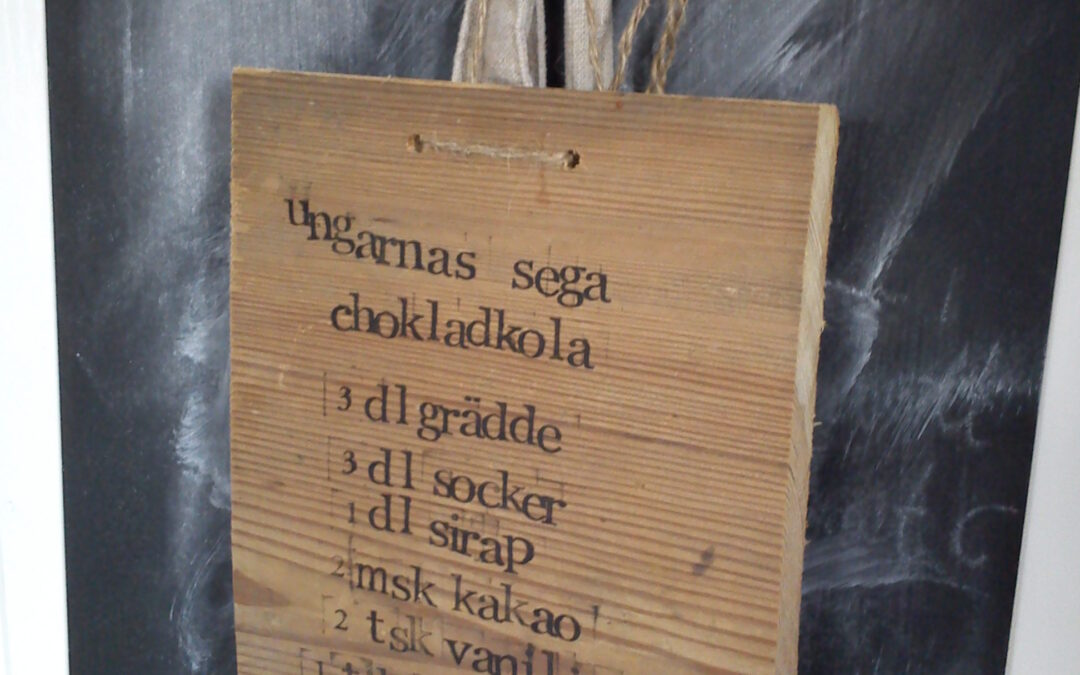 ungarnas sega
chokladkola
3 dl grädde
3 dl socker
1 dl sirap
2 msk kakao
2 tsk